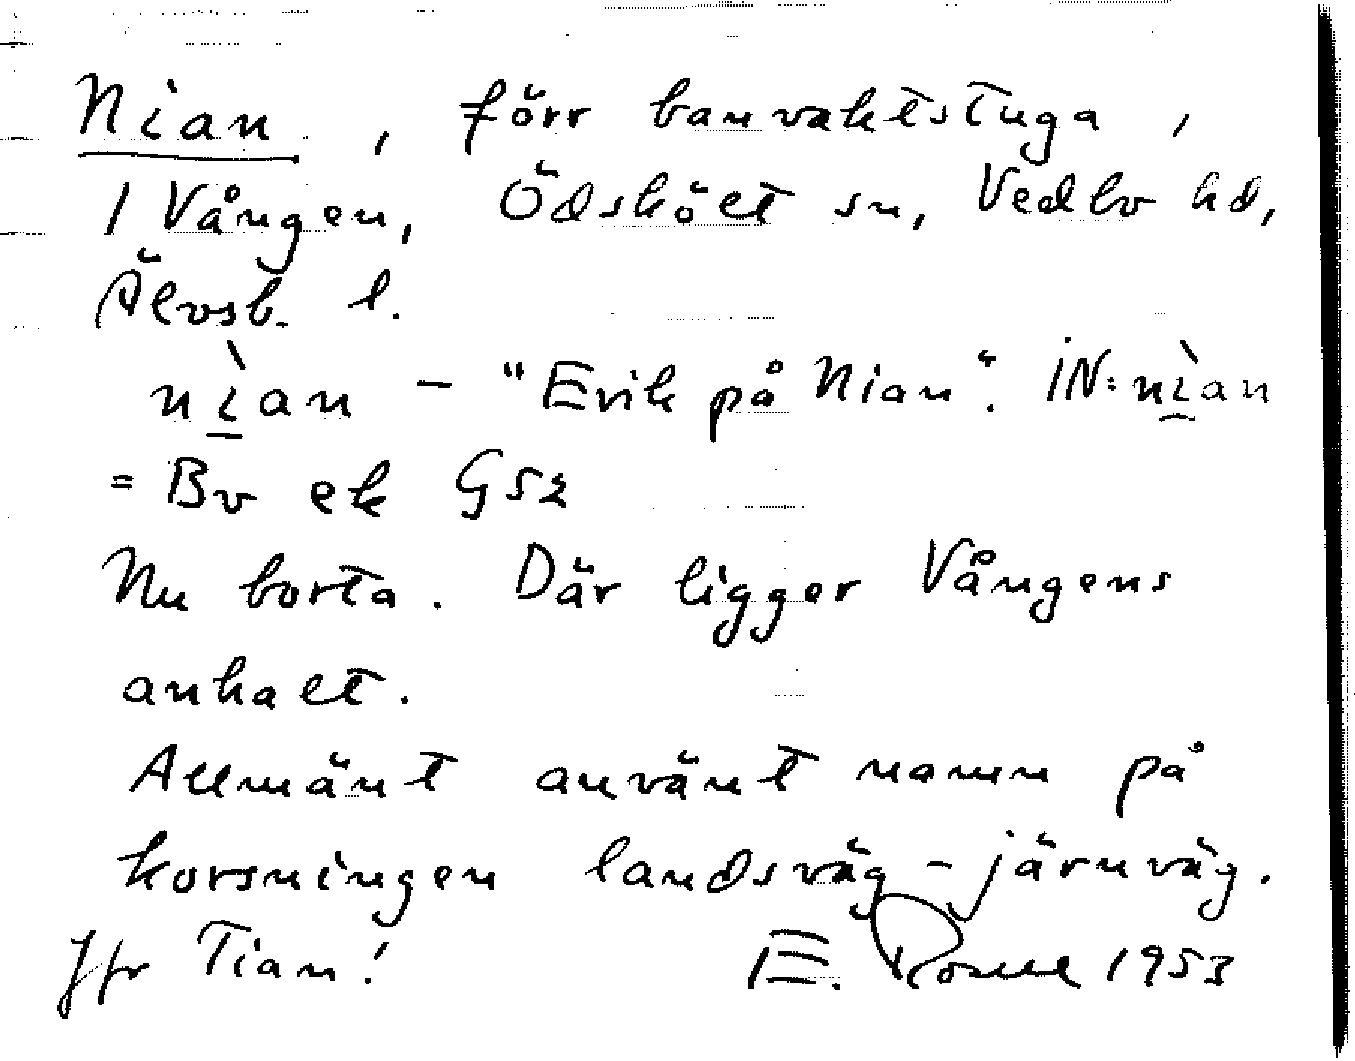 Nian, förr banvaktstuga,
1 Vången, Ödskölt sn, Vedbo hd,
Älvsb. l.
nìan - "Erik på Nian". IN: nìan
= Bv ek G52
Nu borta. Där ligger Vångens
anhalt.
Allmänt använt namn på
korsningen landsväg - järnväg.
Jfr Tian! E. 1953